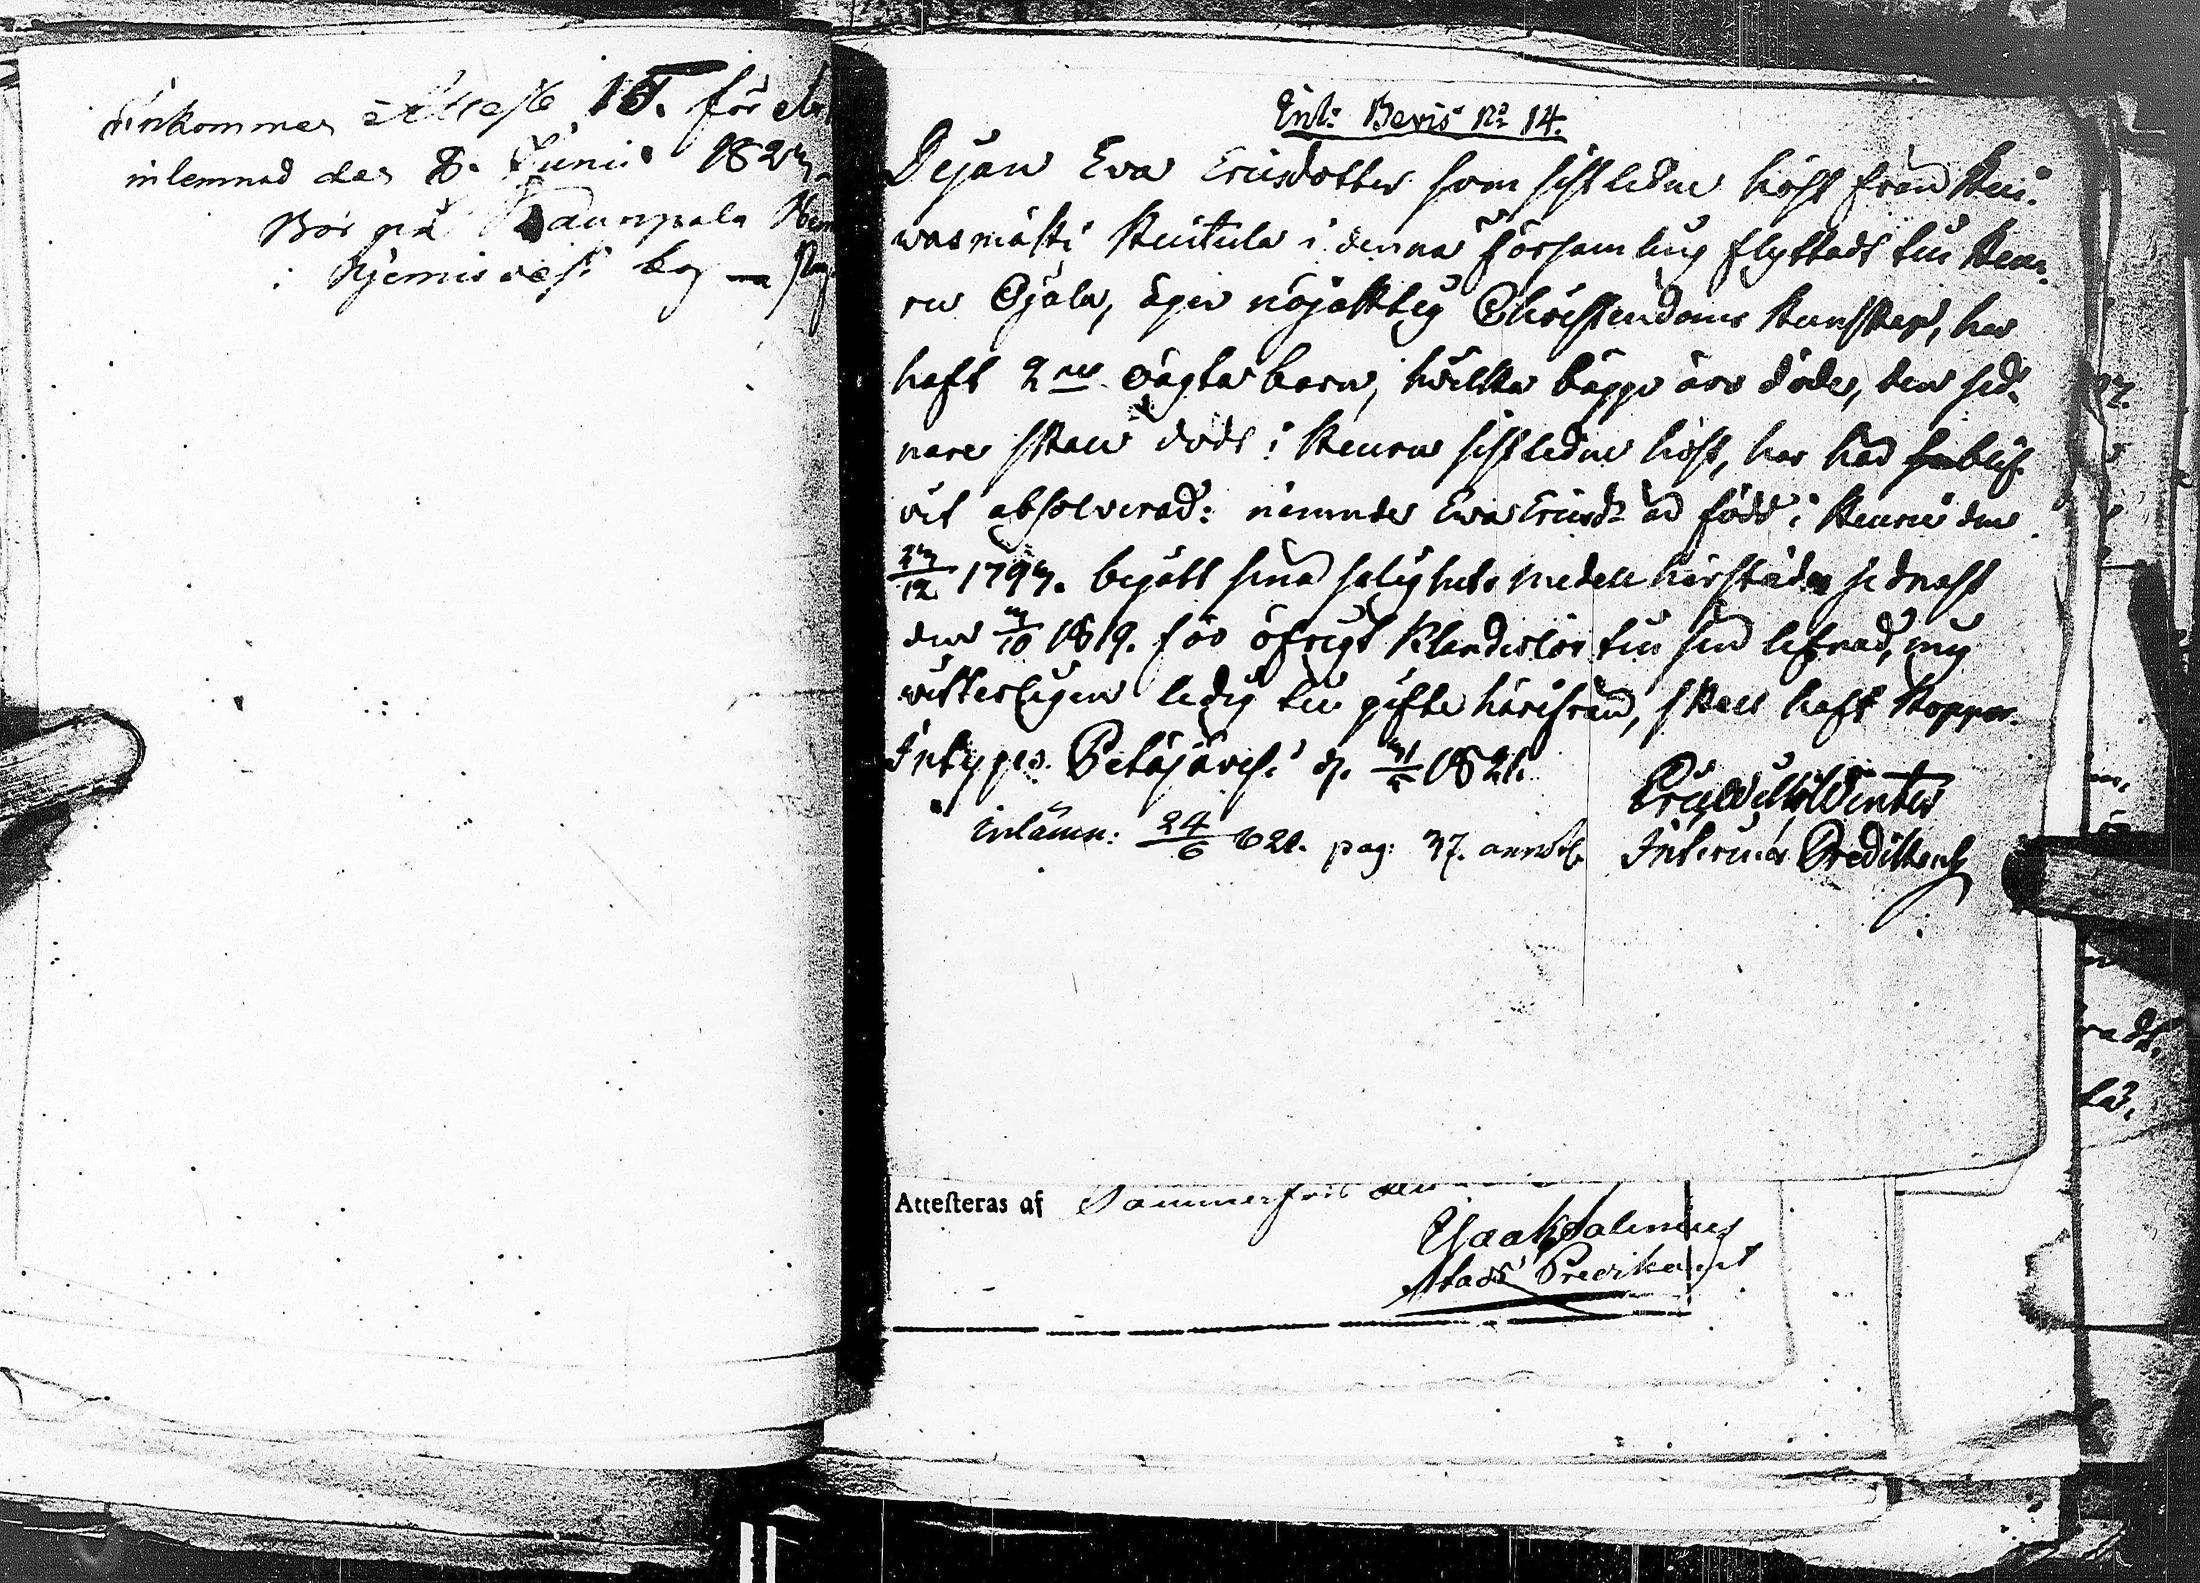 Inkommen Attest 15. för
inlemnad den 8. Junii 1823.
Bör på Kaunpala
i Kjemis
Inl: Bevis No 14.
Pejan Eva Ericsdotter som sistledne höst från Kui-
wasmäki Kuitula i denna Församling flyttadt till Keu-
ru Ojala, äger nöjaktig Christendoms Kunskap, har
haft 2ne oägta barn, hvilka bägge äro döde, den sed-
nare skall dödt i Keuru sistledne höst, har här blif-
vit absolverad: nämnde Eva Ericsdr är född i Keuru den
23/12 1793. begått sina salighets medell härstädes sednast
den 3/10 1819. för öfrigt klanderlös till sin lefnad, mig
vitterligen ledig till gifte härifrån, skall haft Koppor.
Intygas Petäjävesi d. 1821.
Winter
Interims Predikant
inlämn: 24/6 821. pag: 37.
Attesteras af Tammerfors den
Isaak Salenius
Stads Predikant